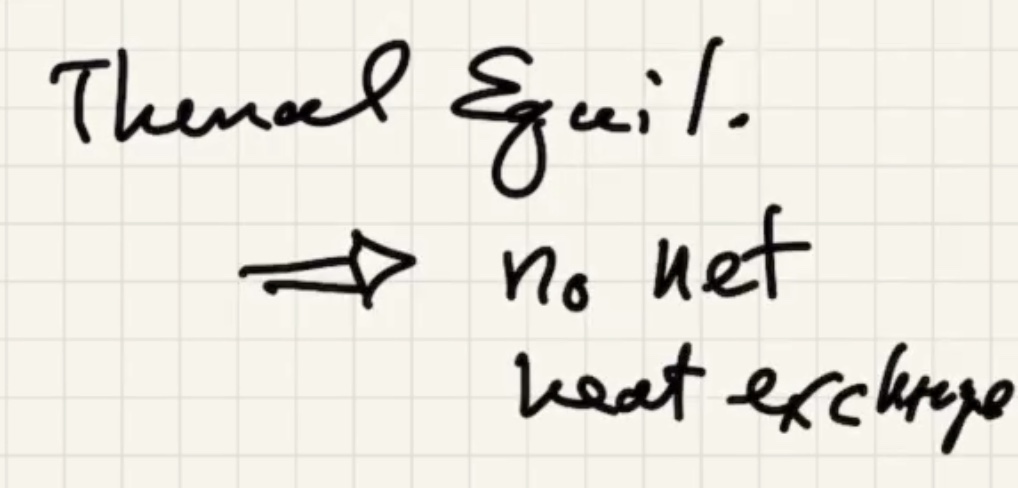 Thermal Equil.
⇒ no net
heat exchange